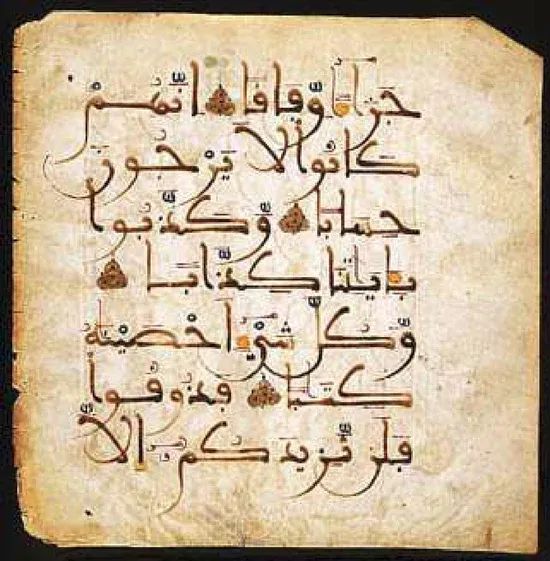 جَزَآءً وِّفَاقًا اِنَّهُمْ
كَانُوا لَا يَرْجُونَ
حِسَابًا وَّكَذَّبُوا
بِـَٔايَٰتِنَا كِذَّابًا
وَّكُلَّ شَيْءٍ اَحْصَيْنَٰهُ
كِتَٰبًا فَذُوقُوا
فَلَن نَّزِيدَكُمُۥٓ إِلَّا